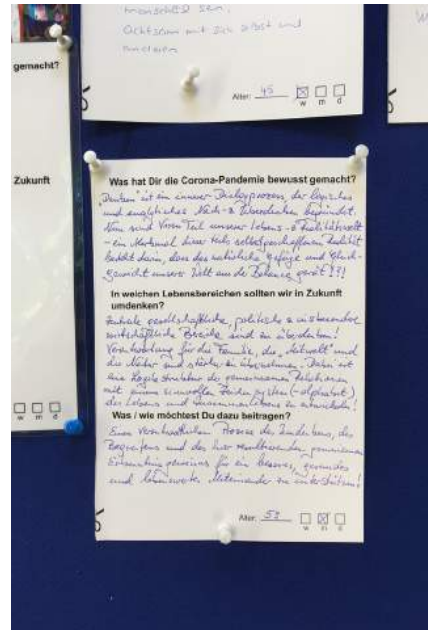 menschlich sein,
Achtsam mit sich selbst und
anderen
Alter: 45
w m d
gemacht?
Zukunft
w m d
Was hat Dir die Corona-Pandemie bewusst gemacht?
"Denken" ist ein innerer Dialogprozess, der logisches
und Nach- & Überdenken begründet.
Nun sind Viren Teil unserer Lebens- & Realitätswelt
- ein Merkmal dieser selbstgeschaffenen Realität
besteht darin, dass das natürliche Gefüge und Gleich-
gewicht unserer Welt aus der Balance gerät!?!
In welchen Lebensbereichen sollten wir in Zukunft
umdenken?
Zentrale gesellschaftliche, politische & insbesondere
wirtschaftliche Bereiche sind zu überdenken!
Verantwortung für die Familie, die "Mitwelt" und
die Natur sind stärker zu übernehmen. Dabei ist
eine der gemeinsamen Relationen
mit einem sinnvollen (-alphabet)
des Lebens und Zusammenlebens zu entwickeln!
Was / wie möchtest Du dazu beitragen?
Einen verantwortlichen Prozess des Umdenkens, des
Begreifens und des gemeinsamen
für ein besseres, gesundes
und lebenswertes Miteinander zu unterstützen!
Alter: 53
w m d